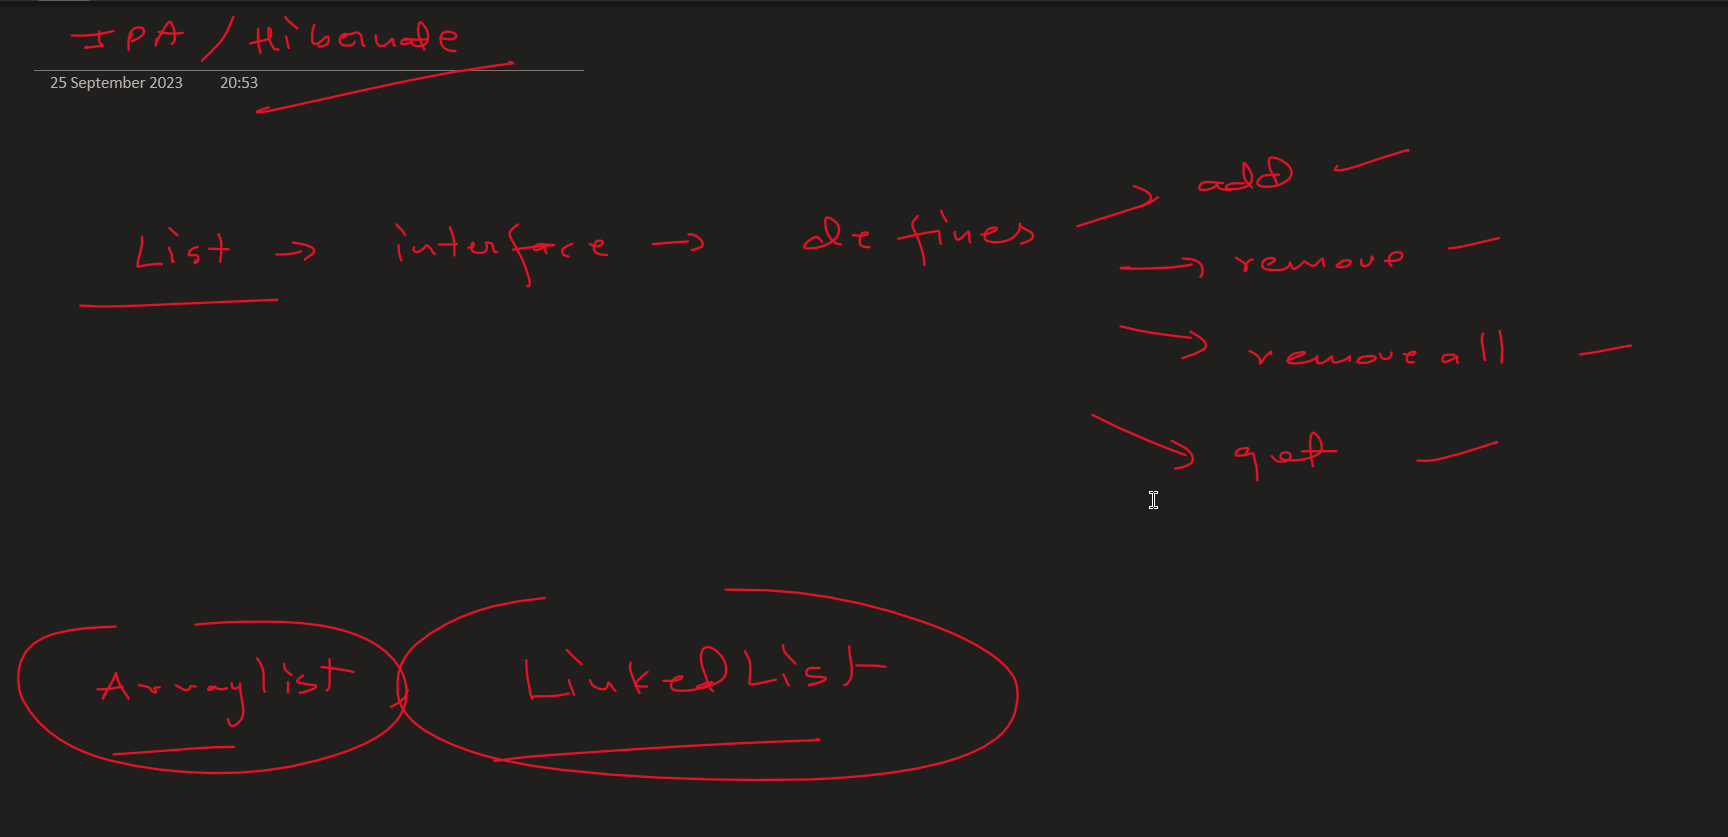 JPA / Hibernate
25 September 2023 20:53
add
List → interface → defines
remove
remove all
get
Arraylist LinkedList